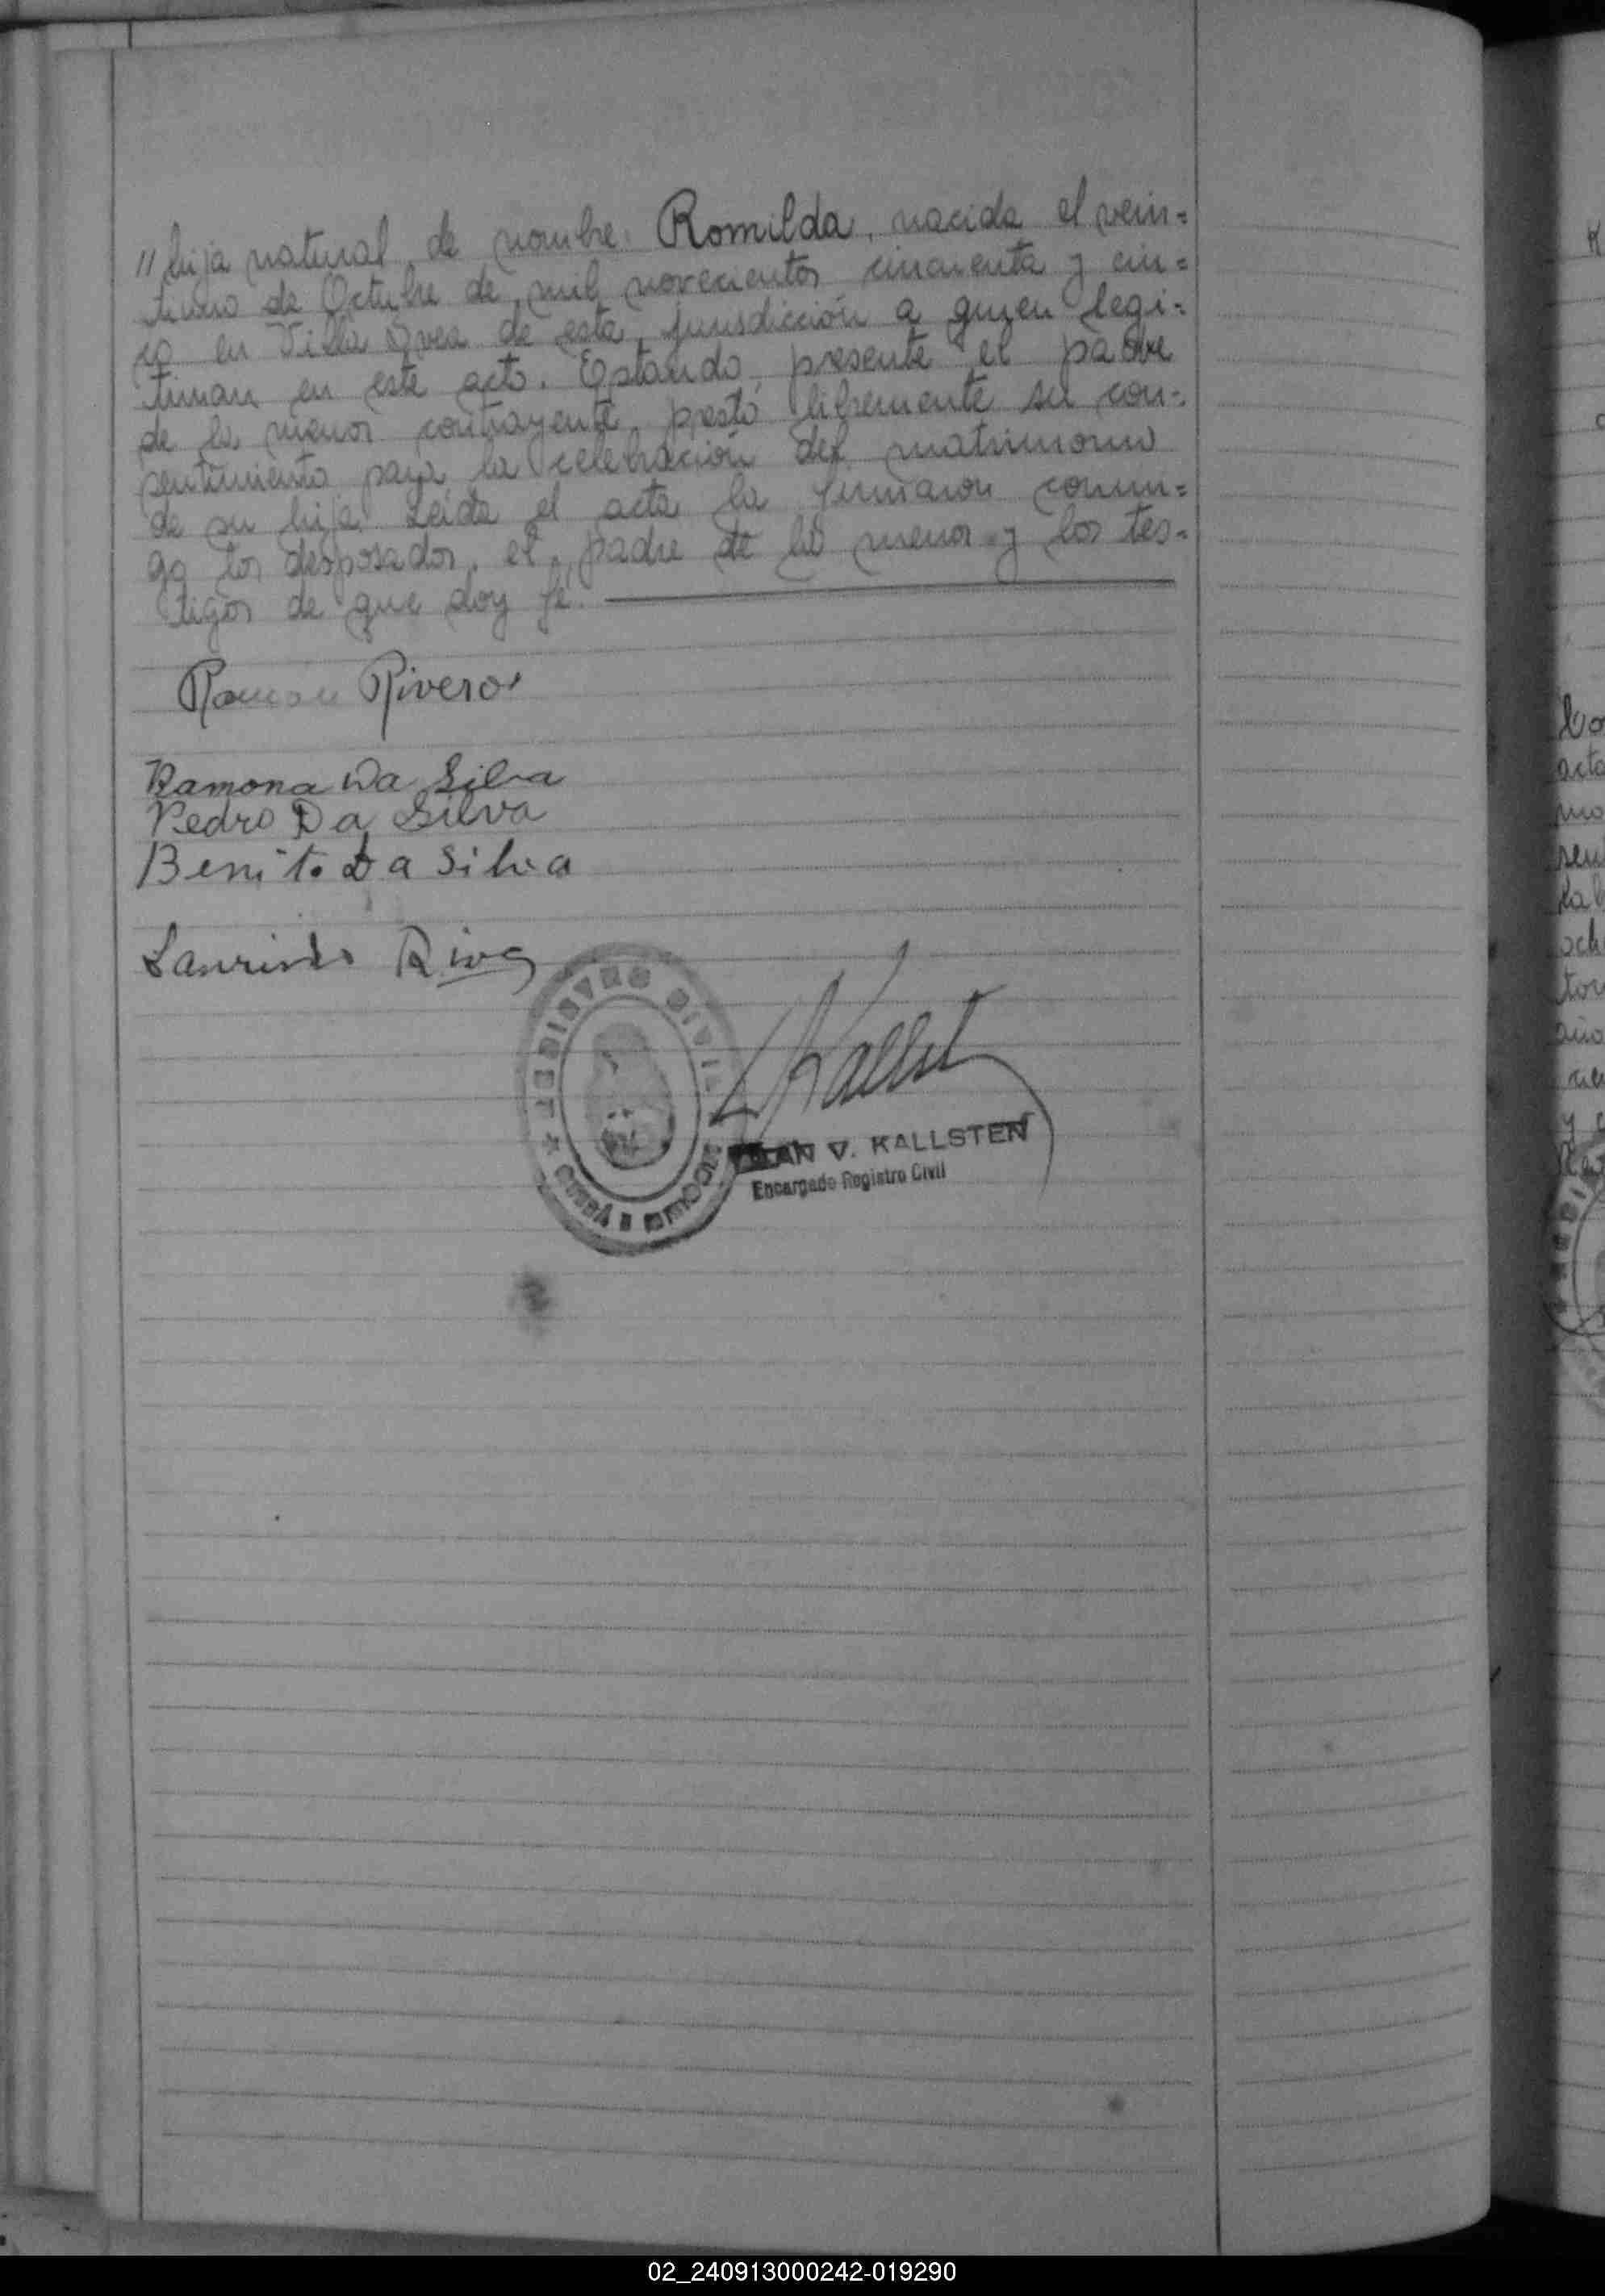 "hija natural de nombre: Romilda, nacida el vein=
tiuno de Octubre de mil novecientos cincuenta y cin=
co en Villa de esta jurisdicción a quien legi=
timan en este acto. Estando presente el padre
de la menor contrayente, prestó libremente su con=
sentimiento para la celebración del matrimonio
de su hija. Leida el acta la firmaron conmi=
go los desposados, el padre de la menor y los tes=
tigos de que doy fé.
Ramon Rivero
Ramona Da Silva
Pedro Da Silva
Benito Da Silva
REGISTRO CIVIL
V. KALLSTEN
Encargado Registro Civil
02_240913000242-019290